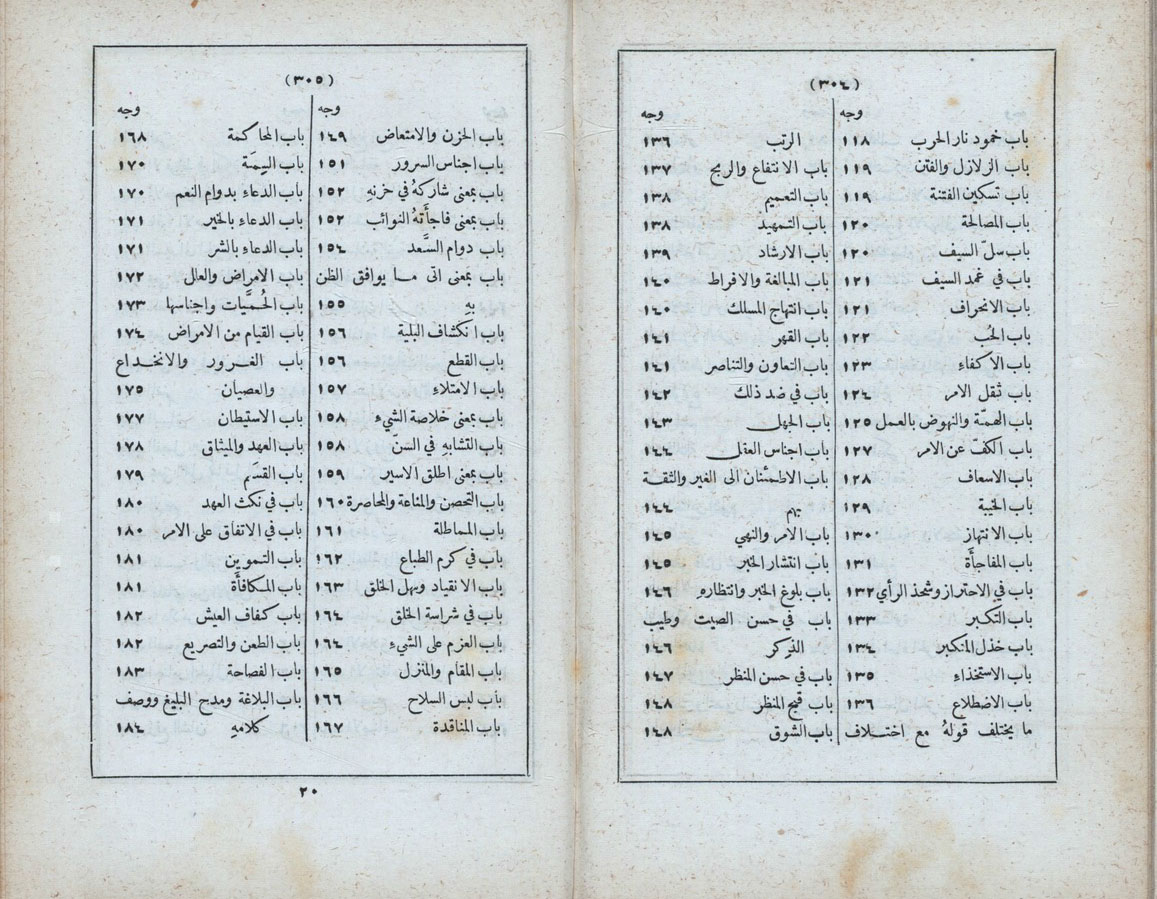 (٣٠٤)
وجه
باب خمود نار الحرب ١١٨
باب الزلازل والفتن ١١٩
باب تسكين الفتنة ١١٩
باب المصالحة ١٢٠
باب سلّ السيف ١٢٠
باب في غمد السيف ١٢١
باب الانحراف ١٢١
باب الحُب ١٢٢
باب الاكفاء ١٢٣
باب ثقل الامر ١٢٤
باب الهمّة والنهوض بالعمل ١٢٥
باب الكفّ عن الامر ١٢٧
باب الاسعاف ١٢٨
باب الخيبة ١٢٩
باب الانتهاز ١٣٠
باب المفاجأَة ١٣١
باب في الاحتراز وشحذ الرأي ١٣٢
باب التكبر ١٣٣
باب خذل المتكبر ١٣٤
باب الاستخذاء ١٣٥
باب الاضطلاع ١٣٦
ما يختلف قولهُ مع اختلاف
وجه
الرتب ١٣٦
باب الانتفاع والربح ١٣٧
باب التعميم ١٣٨
باب التمهيد ١٣٨
باب الارشاد ١٣٩
باب المبالغة والافراط ١٤٠
باب انتهاج المسلك ١٤٠
باب القهر ١٤١
باب التعاون والتناصر ١٤١
باب في ضد ذلك ١٤٢
باب الجهل ١٤٣
باب اجناس العقل ١٤٤
باب الاطمئنان الى الغير والثقة
بهم ١٤٤
باب الامر والنهي ١٤٥
باب انتشار الخبر ١٤٥
باب بلوغ الخبر وانتظاره ١٤٦
باب في حسن الصيت وطيب
الذكر ١٤٦
باب في حسن المنظر ١٤٧
باب قبح المنظر ١٤٨
باب الشوق ١٤٨
(٣٠٥)
وجه
باب الحزن والامتعاض ١٤٩
باب اجناس السرور ١٥١
باب بمعنى شاركهُ في حزنهِ ١٥٢
باب بمعنى فاجأَتهُ النوائب ١٥٢
باب دوام السَّعد ١٥٤
باب بمعنى اتى ما يوافق الظن
بهِ ١٥٥
باب انكشاف البلية ١٥٦
باب القطع ١٥٦
باب الامتلاء ١٥٧
باب بمعنى خلاصة الشيء ١٥٨
باب التشابه في السنّ ١٥٨
باب بمعنى اطلق الاسير ١٥٩
باب التحصن والمناعة والمحاصرة ١٦٠
باب المماطلة ١٦١
باب في كرم الطباع ١٦٢
باب الانقياد وسهل الخلق ١٦٣
باب في شراسة الخلق ١٦٤
باب العزم على الشيء ١٦٤
باب المقام والمنزل ١٦٥
باب لبس السلاح ١٦٦
باب المناقدة ١٦٧
وجه
باب المحاكمة ١٦٨
باب اليمّة ١٧٠
باب الدعاء بدوام النعم ١٧٠
باب الدعاء بالخير ١٧١
باب الدعاء بالشر ١٧١
باب الامراض والعلل ١٧٢
باب الحُمِيَّات واجناسها ١٧٣
باب القيام من الامراض ١٧٤
باب الغرور والانخداع
والعصيان ١٧٥
باب الاستيطان ١٧٧
باب العهد والميثاق ١٧٨
باب القسَم ١٧٩
باب في نكث العهد ١٨٠
باب في الاتفاق على الامر ١٨٠
باب التموين ١٨١
باب المكافأَة ١٨١
باب كفاف العيش ١٨٢
باب الطعن والتصريع ١٨٢
باب الفصاحة ١٨٣
باب البلاغة ومدح البليغ ووصف
كلامهِ ١٨٤
٢٠